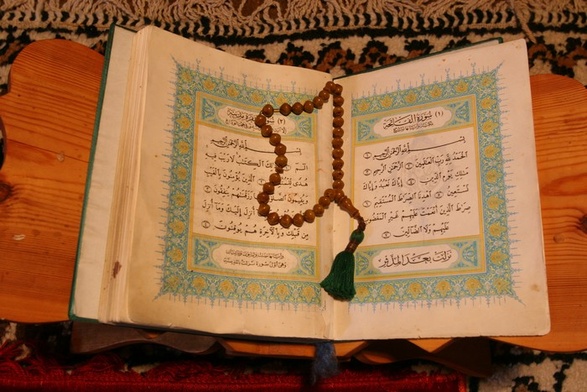 (١) سُورَةُ الْفَاتِحَةِ
بِسْمِ اللَّهِ الرَّحْمَٰنِ الرَّحِيمِ
الْحَمْدُ لِلَّهِ رَبِّ الْعَٰلَمِينَ الرَّحْمَٰنِ الرَّحِيمِ
مَٰلِكِ يَوْمِ الدِّينِ إِيَّاكَ نَعْبُدُ وَإِيَّاكَ
نَسْتَعِينُ اهْدِنَا الصِّرَٰطَ الْمُسْتَقِيمَ
صِرَٰطَ الَّذِينَ أَنْعَمْتَ عَلَيْهِمْ غَيْرِ الْمَغْضُوبِ
عَلَيْهِمْ وَلَا الضَّالِّينَ
نزلت بعد المدثر
(٢) سُورَة
بِسْمِ اللَّهِ الرَّحْمَٰنِ الرَّحِيمِ
الٓمٓ الْكِتَٰبُ لَا رَيْبَ فِيهِ
هُدًى الَّذِينَ يُؤْمِنُونَ بِالْغَيْبِ
وَيُقِيمُونَ رَزَقْنَٰهُمْ يُنفِقُونَ
أُنزِلَ إِلَيْكَ وَمَا أُنزِلَ
مِن قَبْلِكَ وَبِالْأٓخِرَةِ هُمْ يُوقِنُونَ